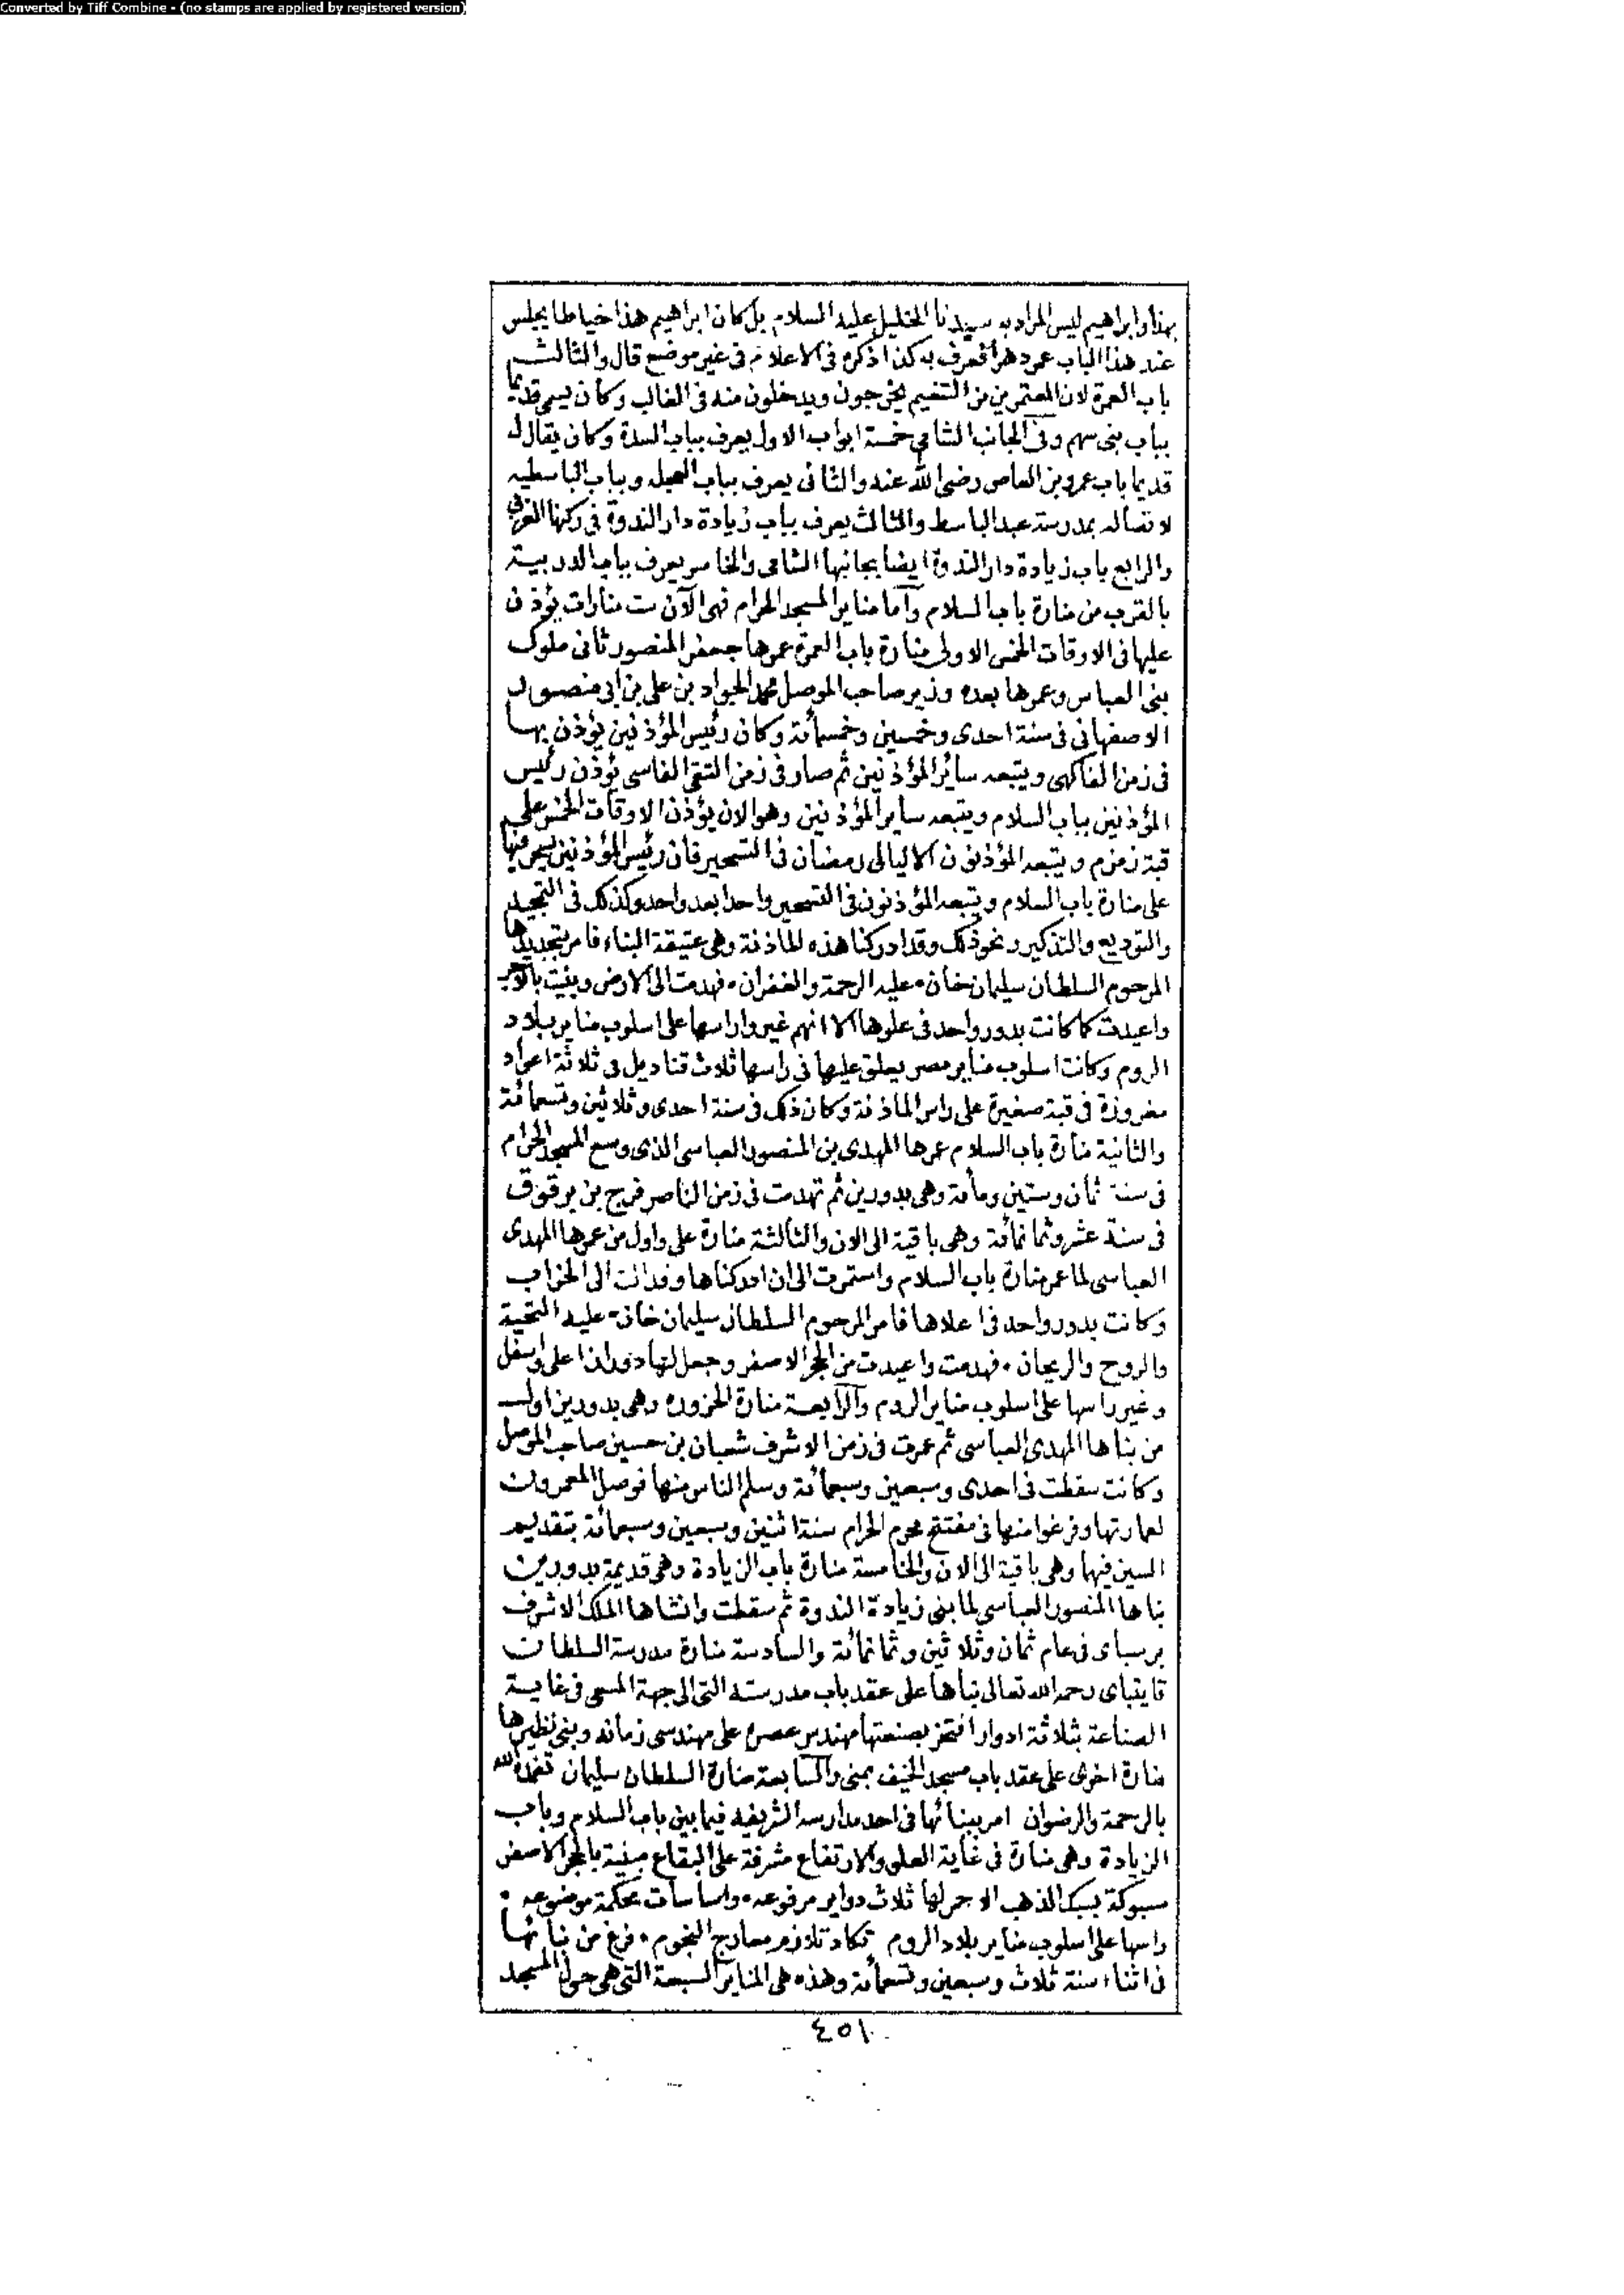 Converted by Tiff Combine - (no stamps are applied by registered version)
بهذا وابراهيم ليس المراد به سيدنا الخليل عليه السلام بل كان ابراهيم هذا خياطا يجلس
عند هذا الباب عمر دهرا فعرف به كذا ذكره فى الاعلام فى غير موضع قال والثالث
باب العمرة لان المعتمرين من التنعيم يخرجون ويدخلون منه فى الغالب وكان يسمى قديما
بباب بنى سهم وفى الجانب الشامى خمسة ابواب الاول يعرف بباب السدة وكان يقال له
قديما باب عمرو بن العاص رضى الله عنه والثانى يعرف بباب العجلة وبباب الباسطيه
لاتصاله بمدرسة عبد الباسط والثالث يعرف بباب زيادة دار الندوة فى ركنها الغربى
والرابع باب زيادة دار الندوة ايضا بجانبها الشامى والخامس يعرف بباب الدربية
بالقرب من منارة باب السلام وأما مناير المسجد الحرام فهى الآن ست منارات يؤذن
عليها فى الاوقات الخمس الاولى منارة باب العمرة عمرها جعفر المنصور ثانى ملوك
بنى العباس وعمرها بعده وزير صاحب الموصل محمد الجواد بن على بن ابى منصور
الاصفهانى فى سنة احدى وخمسين وخمسمائة وكان رئيس المؤذنين يؤذن بها
فى زمن الفاكهى ويتبعه سائر المؤذنين ثم صار فى زمن التقى الفاسى يؤذن رئيس
المؤذنين بباب السلام ويتبعه ساير المؤذنين وهو الان يؤذن الاوقات الخمس على
قبة زمزم ويتبعه المؤذنون الا ليالى رمضان فى التسحير فان رئيس المؤذنين يسحر فيها
على منارة باب السلام ويتبعه المؤذنون فى التسحير واحدا بعد واحد وكذلك فى التمجيد
والتوديع والتذكير ونحو ذلك وقد ادركنا هذه الماذنة وهى عتيقة البناء فامر بتجديدها
المرحوم السلطان سليمان خان ٭ عليه الرحمة والغفران ٭ فهدمت الى الارض وبنيت بالآجر
واعيدت كما كانت بدور واحد فى علوها الا انهم غيروا راسها على اسلوب مناير بلاد
الروم وكانت اسلوب مناير مصر يعلق عليها فى راسها ثلاث قناديل فى ثلاثة اعواد
مغروزة فى قبة صغيرة على راس الماذنة وكان ذلك فى سنة احدى وثلاثين وتسعمائة
والثانية منارة باب السلام عمرها المهدى بن المنصور العباسى الذى وسع المسجد الحرام
فى سنة ثمان وستين ومأة وهى بدورين ثم تهدمت فى زمن الناصر فرج بن برقوق
فى سنة عشر وثمانمائة وهى باقية الى الان والثالثة منارة على واول من عمرها المهدى
العباسى لما عمر منارة باب السلام واستمرت الى ان ادركناها وقد الت الى الخراب
وكانت بدور واحد فى اعلاها فامر المرحوم السلطان سليمان خان ٭ عليه التحية
والروح والريحان ٭ فهدمت واعيدت من الحجر الاصفر وجعل لها دوران اعلى واسفل
وغير راسها على اسلوب مناير الروم والرابعة منارة الحزورة وهى بدورين اول
من بناها المهدى العباسى ثم عمرت فى زمن الاشرف شعبان بن حسين صاحب الموصل
وكانت سقطت فى احدى وسبعين وسبعمائة وسلم الناس منها فوصل المعمرون
لعمارتها وفرغوا منها فى مفتتح محرم الحرام سنة اثنين وسبعين وسبعمائة بتقديم
السين فيها وهى باقية الى الان والخامسة منارة باب الزيادة وهى قديمة بدورين
بناها المنصور العباسى لما بنى زيادة الندوة ثم سقطت وانشاها الملك الاشرف
برسباى فى عام ثمان وثلاثين وثمانمائة والسادسة منارة مدرسة السلطان
قايتباى رحمه الله تعالى بناها على عقد باب مدرسته التى الى جهة المسعى فى غاية
الصناعة بثلاثة ادوار افتخر بصنعتها مهندس عصره على مهندسى زمانه وبنى نظيرها
منارة اخرى على عقد باب مسجد الخيف بمنى والسابعة منارة السلطان سليمان تغمده الله
بالرحمة والرضوان امر ببنائها فى احد مدارسه الشريفه فيما بين باب السلام وباب
الزيادة وهى منارة فى غاية العلو والارتفاع مشرفة على البقاع مبنية بالحجر الاصفر
مسبوكة بسبك الذهب الاحمر لها ثلاث دواير مرفوعه ٭ واساسات محكمة موضوعه ٭
راسها على اسلوب مناير بلاد الروم تكاد تلازم معارج النجوم ٭ فرغ من بنائها
فى اثناء سنة ثلاث وسبعين وتسعمائة وهذه هى المناير السبعة التى هى حول المسجد
٤٥١